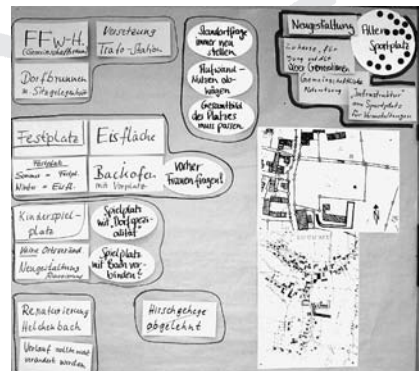 FFw-H.
(Gemeinschaftshaus)
Versetzung
Trafo-Station
Dorfbrunnen
u. Sitzgelegenheit
Standortfrage
immer neu
stellen
Aufwand-
Nutzen ab-
wägen
Gesamtbild
des Platzes
muss passen
Neugestaltung
Alter
Sportplatz
für
Jung und Alt
über Generationen
Gemeinschaftliche
Nutzung
"Infrastruktur"
am Sportplatz
für Veranstaltungen
Festplatz
Eisfläche
Sommer = Festpl.
Winter = Eisfl.
Backofen
mit Vorplatz
vorher
Frauen fragen!
Kinderspiel-
platz
Spielplatz
mit "Dorfspezi-
alität"
Keine Ortsrand
Neugestaltung
Spielplatz
mit Bach ver-
binden!
Renaturierung
Helchenbach
Verlauf sollte nicht
verändert werden
Hirschgehege
abgelehnt